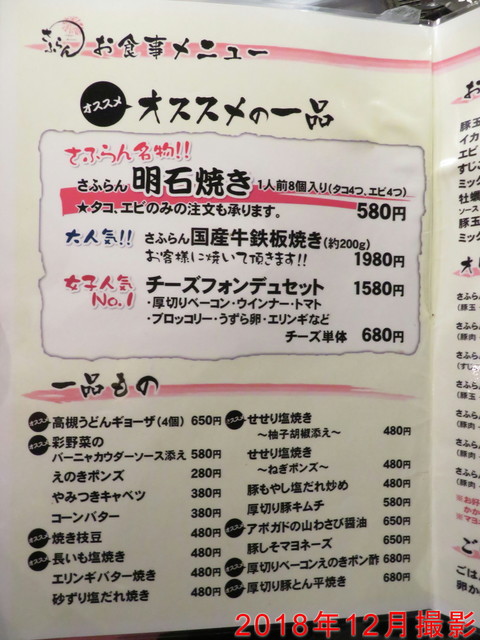 さふらん お食事メニュー
オススメ オススメの一品
さふらん名物!!
さふらん 明石焼き 1人前8個入り(タコ4つ、エビ4つ)
★タコ、エビのみの注文も承ります。 580円
大人気!! さふらん 国産牛鉄板焼き(約200g)
お客様に焼いて頂きます!! 1980円
女子人気No.1 チーズフォンデュセット 1580円
・厚切りベーコン・ウインナー・トマト
・ブロッコリー・うずら卵・エリンギなど
チーズ単体 680円
一品もの
オススメ 高槻うどんギョーザ(4個) 650円
オススメ 彩野菜の
バーニャカウダーソース添え 580円
えのきポンズ 280円
やみつきキャベツ 380円
コーンバター 380円
オススメ 焼き枝豆 480円
オススメ 長いも塩焼き 480円
エリンギバター焼き 480円
砂ずり塩だれ焼き 480円
オススメ せせり塩焼き
～柚子胡椒添え～ 480円
せせり塩焼き
～ねぎポンズ～ 480円
豚もやし塩だれ炒め 480円
厚切り豚キムチ 580円
オススメ アボガドの山わさび醤油 650円
豚しそマヨネーズ 650円
オススメ 厚切りベーコンえのきポン酢 680円
オススメ 厚切り豚とん平焼き 680円
お
豚玉
イカ
エビ
すじこ
ミック
牡蠣
ソース
豚玉
ミック
さふらん
(豚玉・
さふらん
(豚肉・
さふらん
(すじ
さふらん
さふらん
さふらん
さふらん
※お好
かか
※マヨ
ご
ごはん
卵か
2018年12月撮影